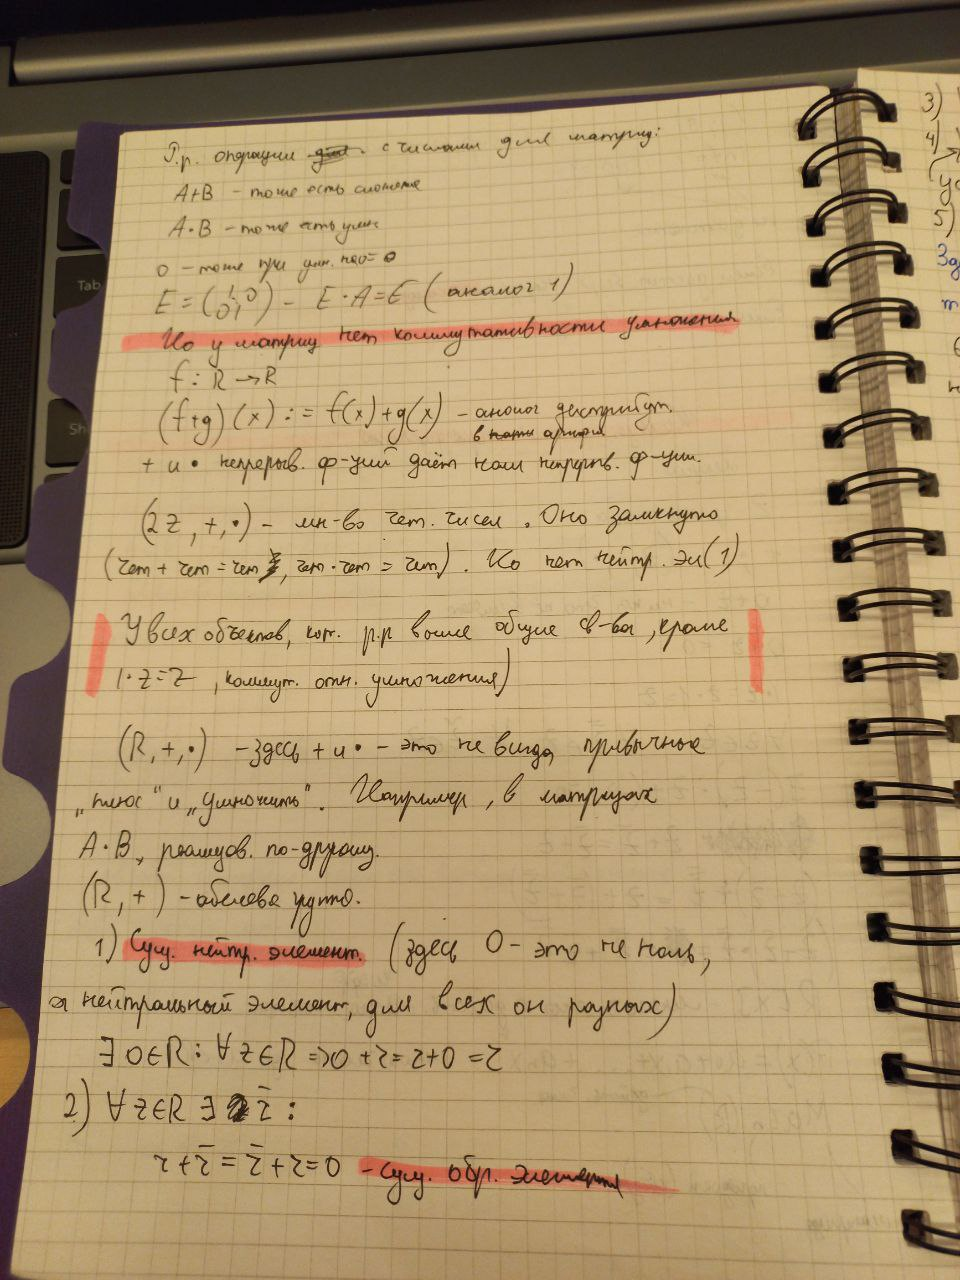 Р.р. операции с числами для матриц:
A+B - тоже есть сложение
A·B - тоже есть умн
0 - тоже при умн. на 0 = 0
E = (1 0 0 1) - E·A=E (аналог 1)
Но у матриц нет коммутативности умножения
f: R → R
(f+g)(x) := f(x)+g(x) - аналог дистрибут.
в арифм
+ и · непрерыв. ф-ций даёт нам непрерыв. ф-ции.
(2Z, +, ·) - мн-во чет. чисел. Оно замкнуто
(чет + чет = чет, чет · чет = чет). Но нет нейтр. эл(1)
У всех объектов, кот. р.р выше общие св-ва, кроме
1·z=z, коммут. отн. умножения)
(R, +, ·) - здесь + и · - это не всегда привычные
„плюс“ и „умножить“. Например, в матрицах
A·B, реализов. по-другому.
(R, +) - абелева группа.
1) Сущ. нейтр. элемент. (здесь 0 - это не ноль,
а нейтральный элемент, для всех он разных)
∃ 0∈R: ∀ z∈R => 0+z=z+0=z
2) ∀ z∈R ∃ z̄ :
z+z̄=z̄+z=0 - сущ. обр. элемента
3)
4)
5)